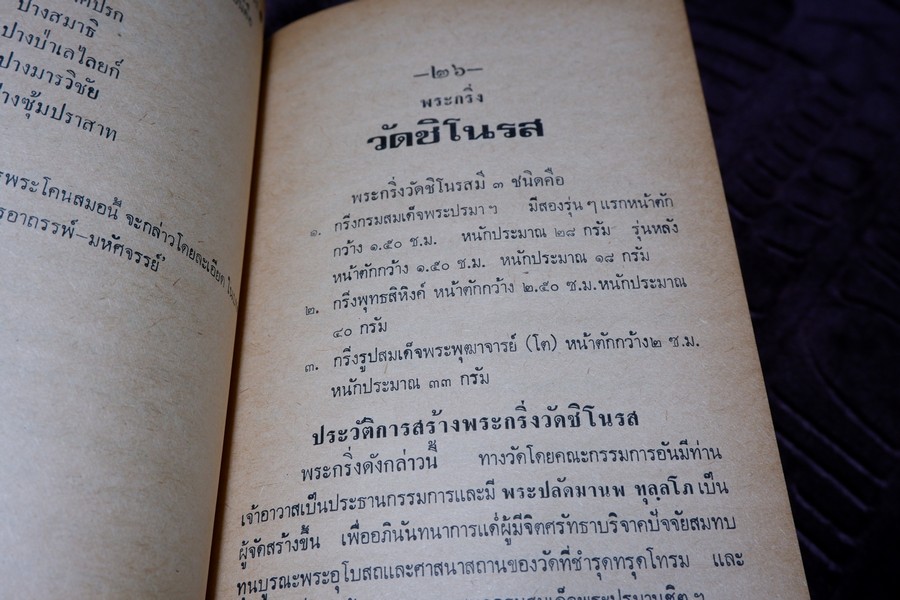 ปางสมาธิ
ปางป่าเลไลยก์
ปางมารวิชัย
ปางซุ้มปราสาท
พระโคนสมอนี้ จะกล่าวโดยละเอียด
อาถรรพ์–มหัศจรรย์'
—๒๖—
พระกริ่ง
วัดชิโนรส
พระกริ่งวัดชิโนรสมี ๓ ชนิดคือ
๑. กริ่งกรมสมเด็จพระปรมา ฯ มีสองรุ่น ๆ แรกหน้าตัก
กว้าง ๑.๕๐ ซ.ม. หนักประมาณ ๒๘ กรัม รุ่นหลัง
หน้าตักกว้าง ๑.๕๐ ซ.ม. หนักประมาณ ๑๘ กรัม
๒. กริ่งพุทธสิหิงค์ หน้าตักกว้าง ๒.๕๐ ซ.ม.หนักประมาณ
๔๐ กรัม
๓. กริ่งรูปสมเด็จพระพุฒาจารย์ (โต) หน้าตักกว้าง๒ ซ.ม.
หนักประมาณ ๓๓ กรัม
ประวัติการสร้างพระกริ่งวัดชิโนรส
พระกริ่งดังกล่าวนี้ ทางวัดโดยคณะกรรมการอันมีท่าน
เจ้าอาวาสเป็นประธานกรรมการและมี พระปลัดมานพ ทุลฺลโภ เป็น
ผู้จัดสร้างขึ้น เพื่ออภินันทนาการแด่ผู้มีจิตศรัทธาบริจาคปัจจัยสมทบ
ทุนบูรณะพระอุโบสถและศาสนาสถานของวัดที่ชำรุดทรุดโทรม และ